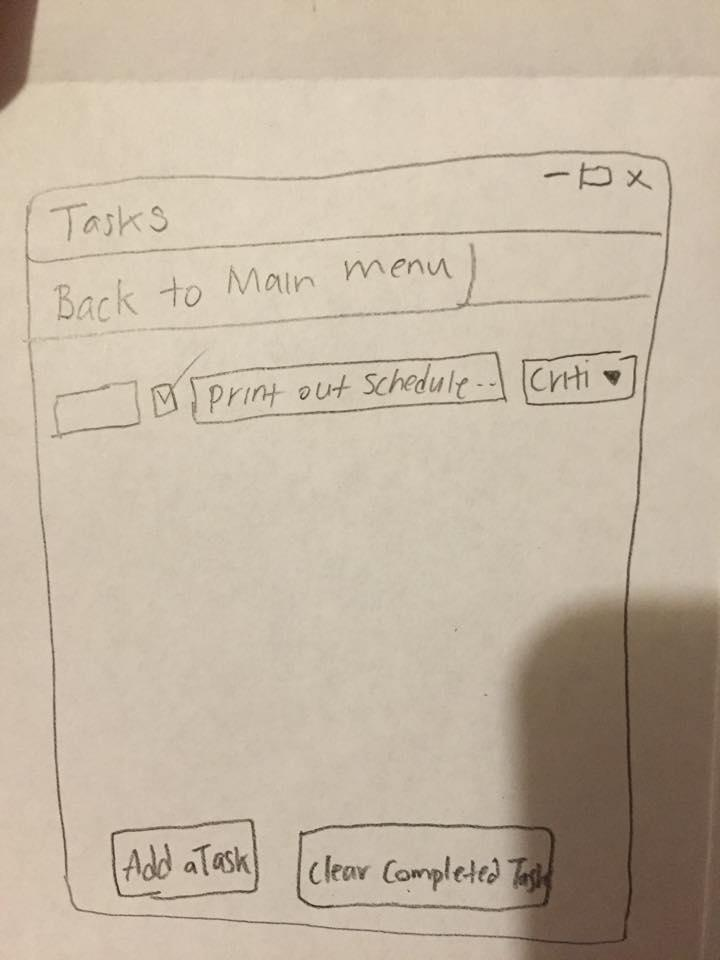 Tasks
Back to Main menu
print out schedule.. Criti
Add a Task
Clear Completed Task